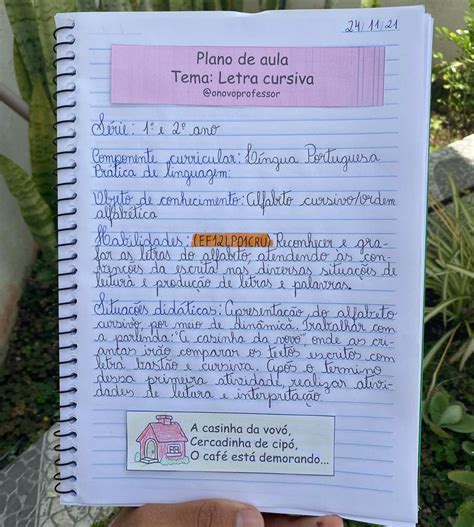 24/11/21
Plano de aula
Tema: Letra cursiva
@onovoprofessor
Série: 1º e 2º ano
Componente curricular: Língua Portuguesa
Prática de linguagem:
Objeto de conhecimento: Alfabeto cursivo/ordem
alfabética
Habilidades: (EF12LP01CRU) Reconhecer e gra-
far as letras do alfabeto, atendendo às con-
venções da escrita nas diversas situações de
leitura e produção de letras e palavras.
Situações didáticas: Apresentação do alfabeto
cursivo, por meio de dinâmica. Trabalhar com
a parlenda: "A casinha da vovó", onde as cri-
anças irão comparar os textos escritos com
letra bastão e cursiva. Após o término
dessa primeira atividade, realizar ativi-
dades de leitura e interpretação.
A casinha da vovó,
Cercadinha de cipó,
O café está demorando...